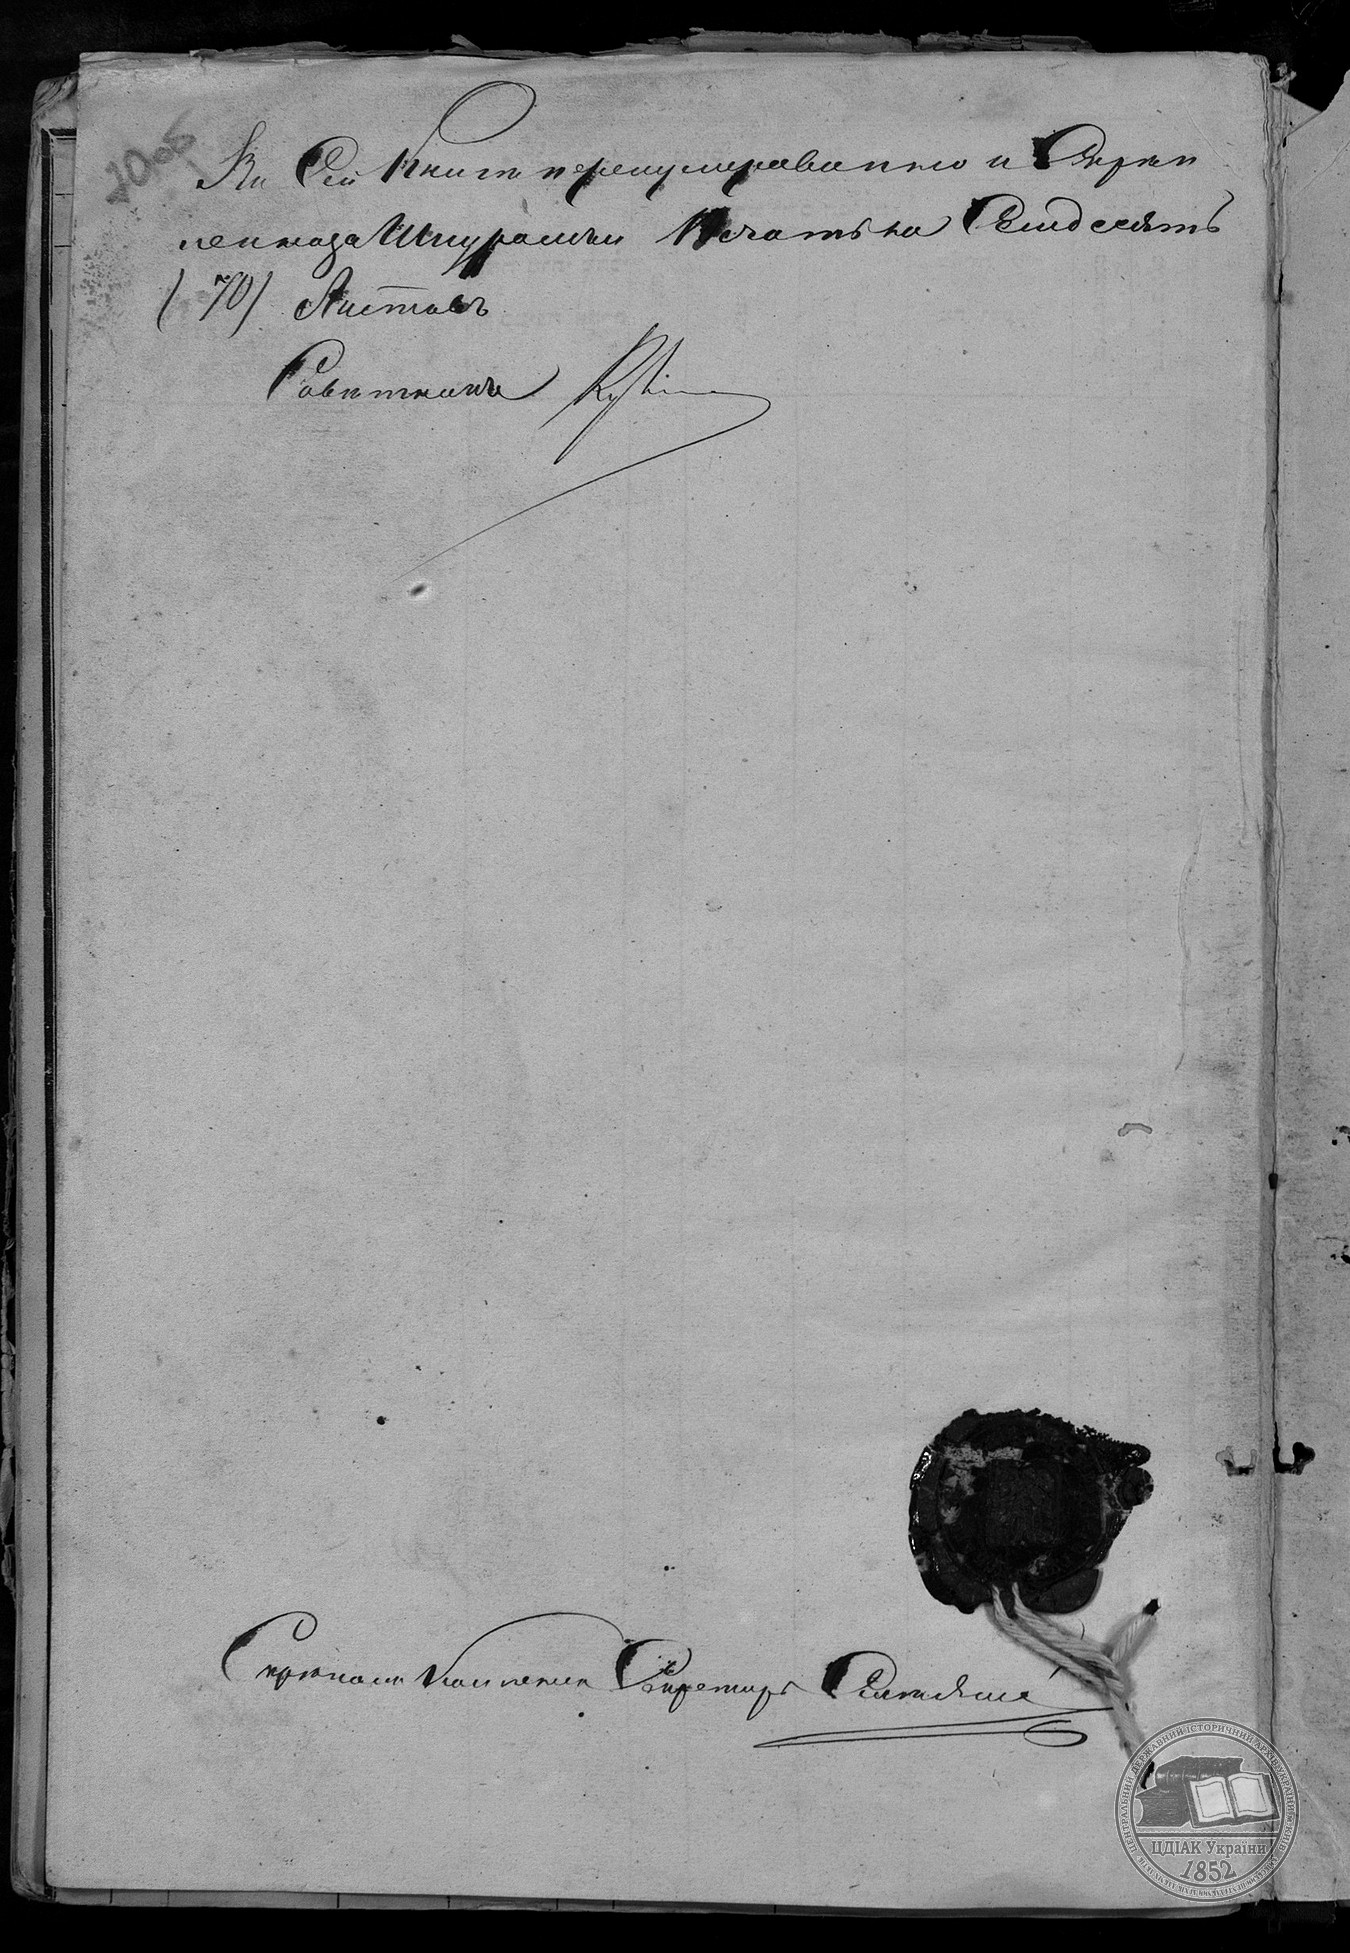 20об
Въ Сей Книги перенумерованно и Скреп
ленно за Шнуромъ и Печатью Семдесятъ
(70) Листовъ
Советникъ
Скрепилъ Секретарь
ЦЕНТРАЛЬНИЙ ДЕРЖАВНИЙ ІСТОРИЧНИЙ АРХІВ УКРАЇНИ, М. КИЇВ
ЦДІАК України
1852